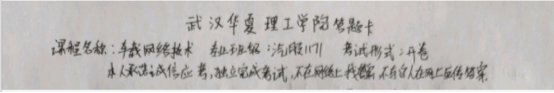 武汉华夏理工学院答题卡
课程名称:车载网络技术 专业班级:汽服1171 考试形式:开卷
本人承诺诚信应考,独立完成考试,不在网络上找答案,不与他人在网上互传答案.